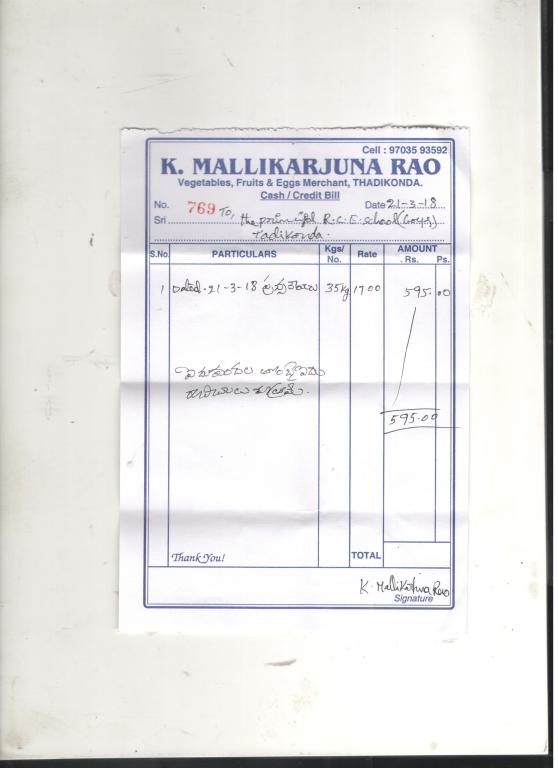 Cell : 97035 93592
K. MALLIKARJUNA RAO
Vegetables, Fruits & Eggs Merchant, THADIKONDA.
Cash / Credit Bill
No. 769 Date 21-3-18
Sri To, the R.C.E. school (Boys)
Tadikonda.
S.No. PARTICULARS Kgs/ No. Rate AMOUNT Rs. Ps.
1 Dated-21-3-18 35kg 17.00 595.00
595.00
Thank You! TOTAL
K. Mallikarjuna Rao
Signature